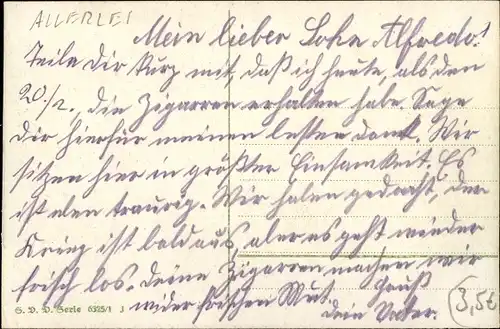 ALLERLEI
Mein lieber Sohn Alfredo!
Teile Dir kurz mit, daß ich heute, als den
20./2., die Zigarren erhalten habe. Sage
Dir hierfür meinen besten Dank. Wir
sitzen hier in größter Einsamkeit. Es
ist eben traurig. Wir haben gedacht, der
Krieg ist bald aus, aber es geht wieder
frisch los. Deine Zigarren machen mir
wider frischen Mut. Gruß
Dein Vater.
S. V. D. Serie 6325/1 J
3,50